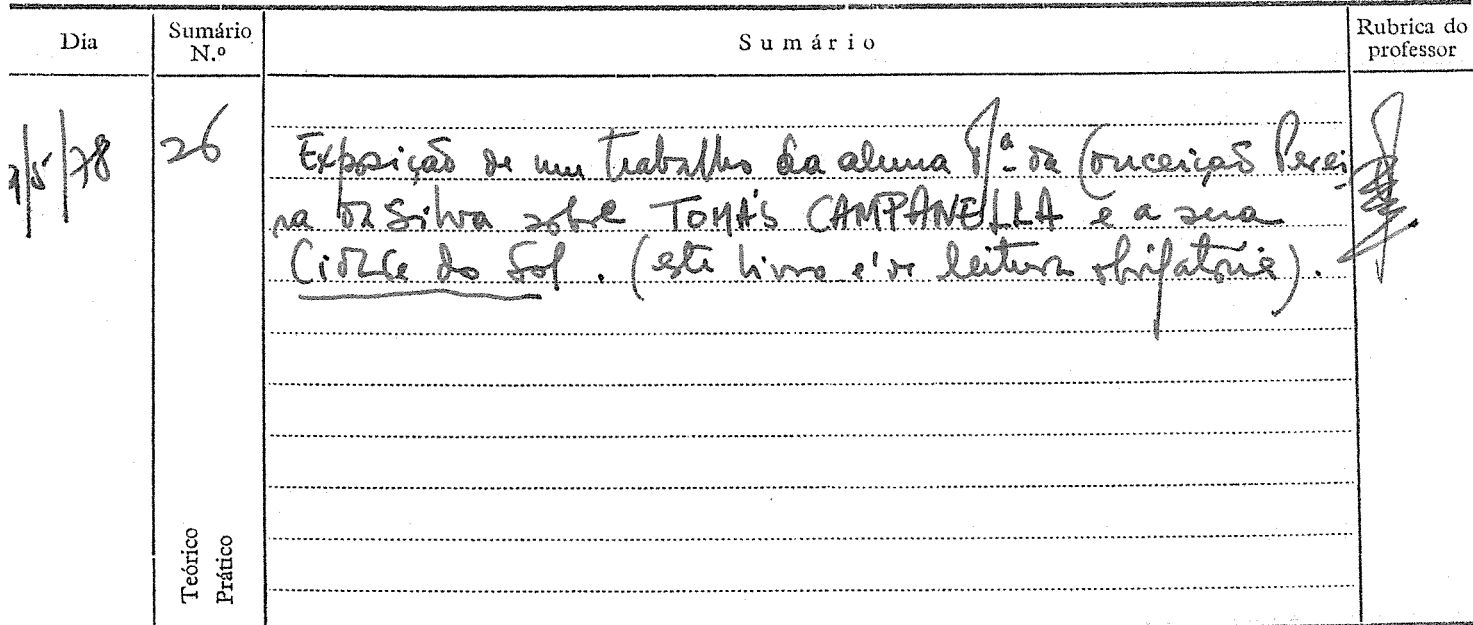 Dia
Sumário N.º
Sumário
Rubrica do professor
/5/78
26
Exposição de um trabalho da aluna Mª da Conceição Perei
ra da Silva sobre TOMÁS CAMPANELLA e a sua
Cidade do Sol. (este livro é de leitura obrigatória).
Teórico
Prático